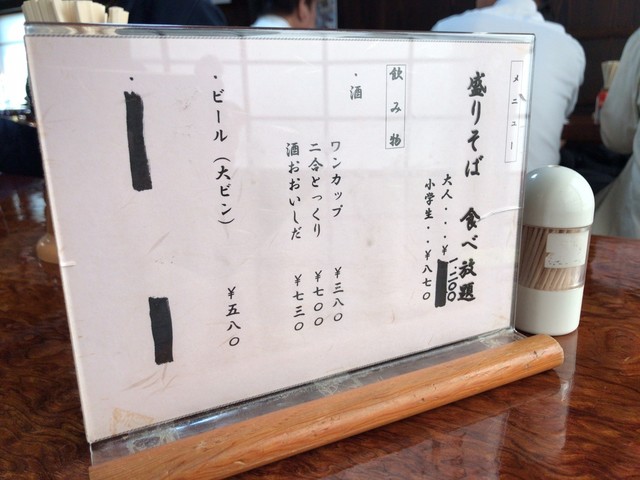 メニュー
盛りそば 食べ放題
大人・・・¥一、二〇〇
小学生・・¥八七〇
飲み物
・酒
ワンカップ ¥三八〇
二合とっくり ¥七〇〇
酒おおいしだ ¥七三〇
・ビール（大ビン） ¥五八〇
・